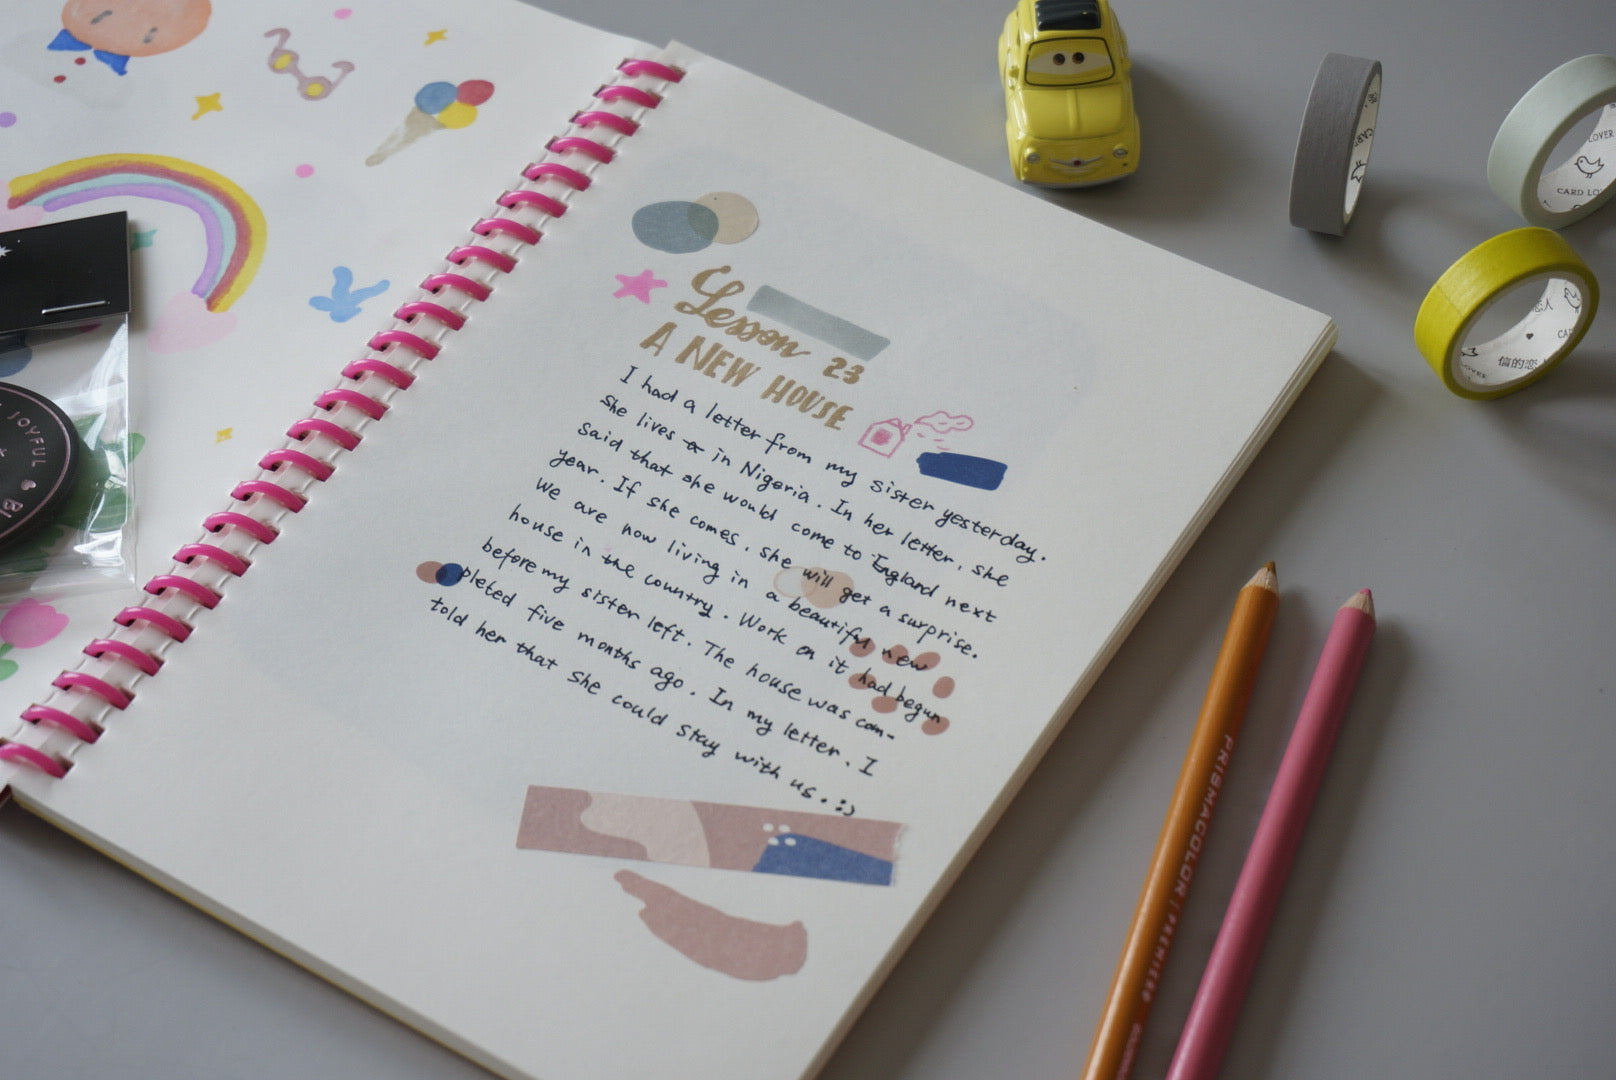 Lesson 23
A NEW HOUSE
I had a letter from my sister yesterday.
She lives in Nigeria. In her letter, she
said that she would come to England next
year. If she comes, she will get a surprise.
We are now living in a beautiful new
house in the country. Work on it had begun
before my sister left. The house was com-
pleted five months ago. In my letter, I
told her that she could stay with us. :)
JOYFUL
PRISMACOLOR | PREMIER
CARD LOVER
LOVER
信的恋人